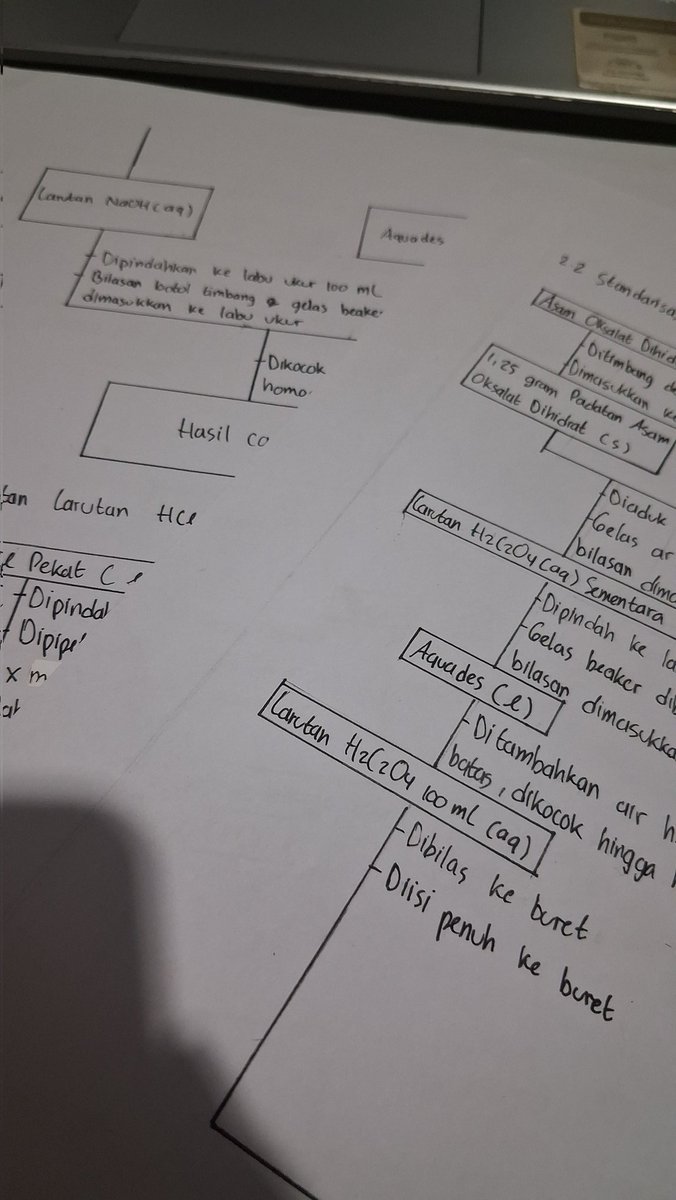 Larutan NaOH (aq)
- Dipindahkan ke labu ukur 100 ml
- Bilasan botol timbang & gelas beaker
dimasukkan ke labu ukur
- Dikocok
homo
Hasil
Aquades
Larutan HCl
Pekat (l
- Dipindah
- Dipipe
x m
2.2 Standarisa
Asam Oksalat Dihid
- Ditimbang d
- Dimasukkan ke
1,25 gram Padatan Asam
Oksalat Dihidrat (s)
- Diaduk
- Gelas ar
bilasan dima
Larutan H2C2O4 (aq) Sementara
- Dipindah ke la
- Gelas beaker dib
bilasan dimasukka
Aquades (l)
- Ditambahkan air h
batas, dikocok hingga h
Larutan H2C2O4 100 ml (aq)
- Dibilas ke buret
- Diisi penuh ke buret